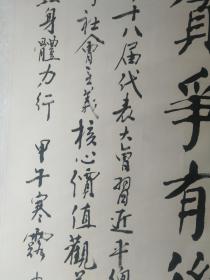 爭有
十八届代表大會習近平總
社會主義核心價值觀
身體力行
甲午寒露